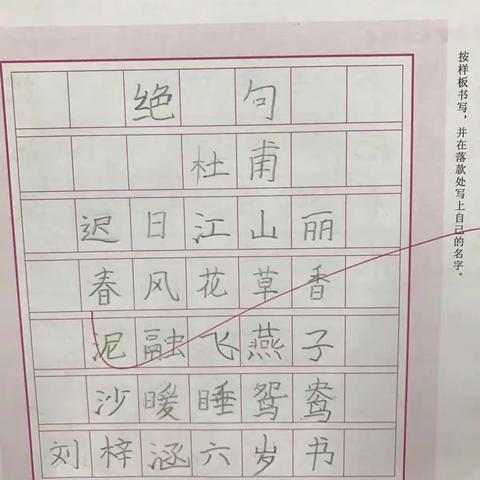 绝句
杜甫
迟日江山丽
春风花草香
泥融飞燕子
沙暖睡鸳鸯
刘梓涵六岁书
按样板书写，并在落款处写上自己的名字。